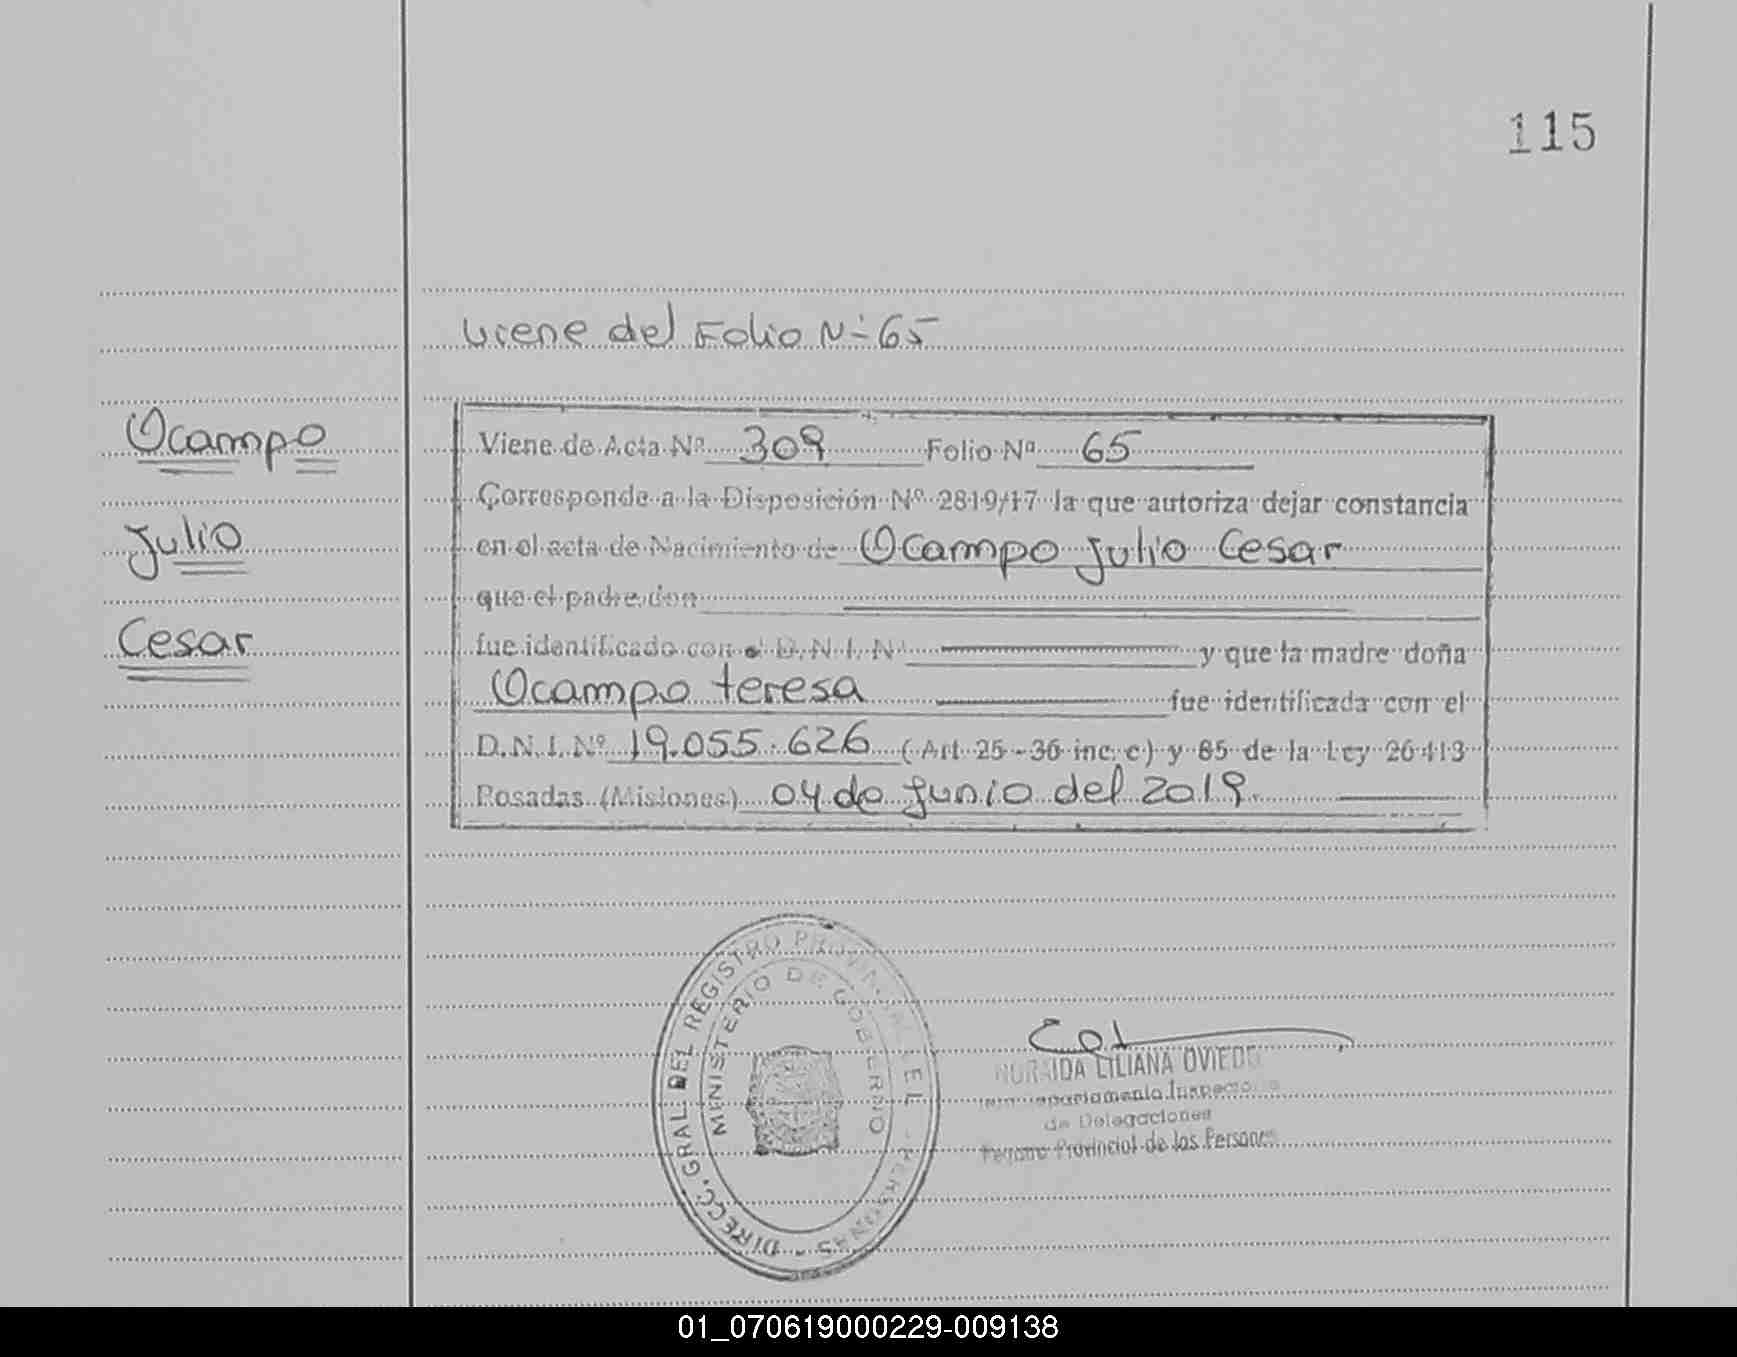 115
Viene del Folio N° 65
Ocampo
Julio
Cesar
Viene de Acta Nº 309 Folio Nº 65
Corresponde a la Disposición Nº 2819/17 la que autoriza dejar constancia
en el acta de Nacimiento de Ocampo Julio Cesar
que el padre don
fue identificado con el D.N.I. Nº y que la madre doña
Ocampo teresa fue identificada con el
D.N.I. Nº 19.055.626 (Art. 25 - 36 inc. c) y 85 de la Ley 26413
Posadas (Misiones) 04 de Junio del 2019.
DIRECC. GRAL. DEL REGISTRO PROVINCIAL DE PERSONAS
MINISTERIO DE GOBIERNO
LILIANA OVIEDO
Departamento Inspectoria
de Delegaciones
Registro Provincial de las Personas
01_070619000229-009138